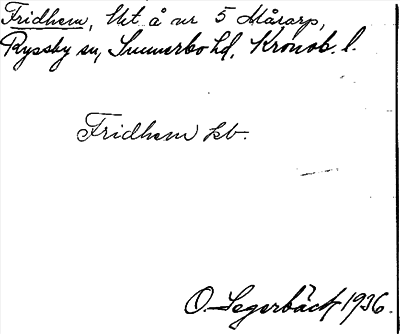 Fridhem, Ut. å nr 5 Mårarp,
Ryssby sn, Sunnerbo hd, Kronob. l.
Fridhem hb.
O. Segerbäck 1936.